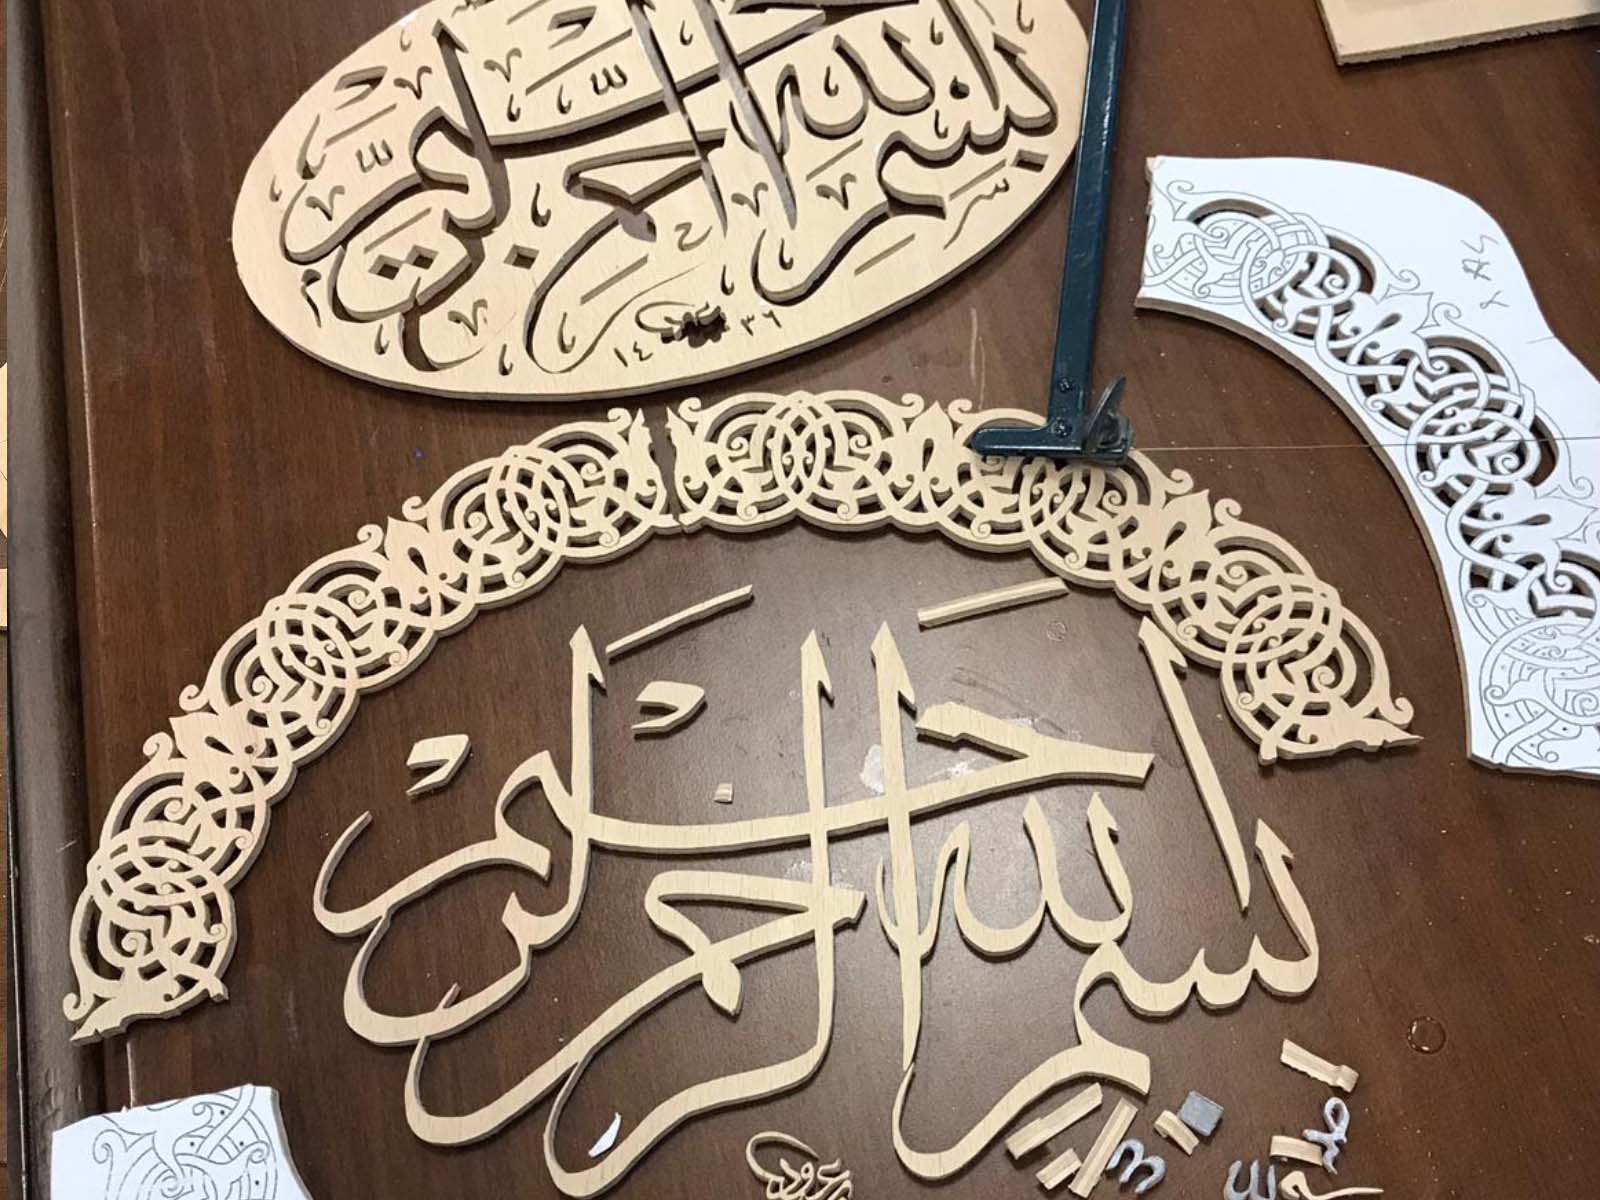 بسم الله الرحمن الرحيم
١٤٣٦
بسم الله الرحمن الرحيم